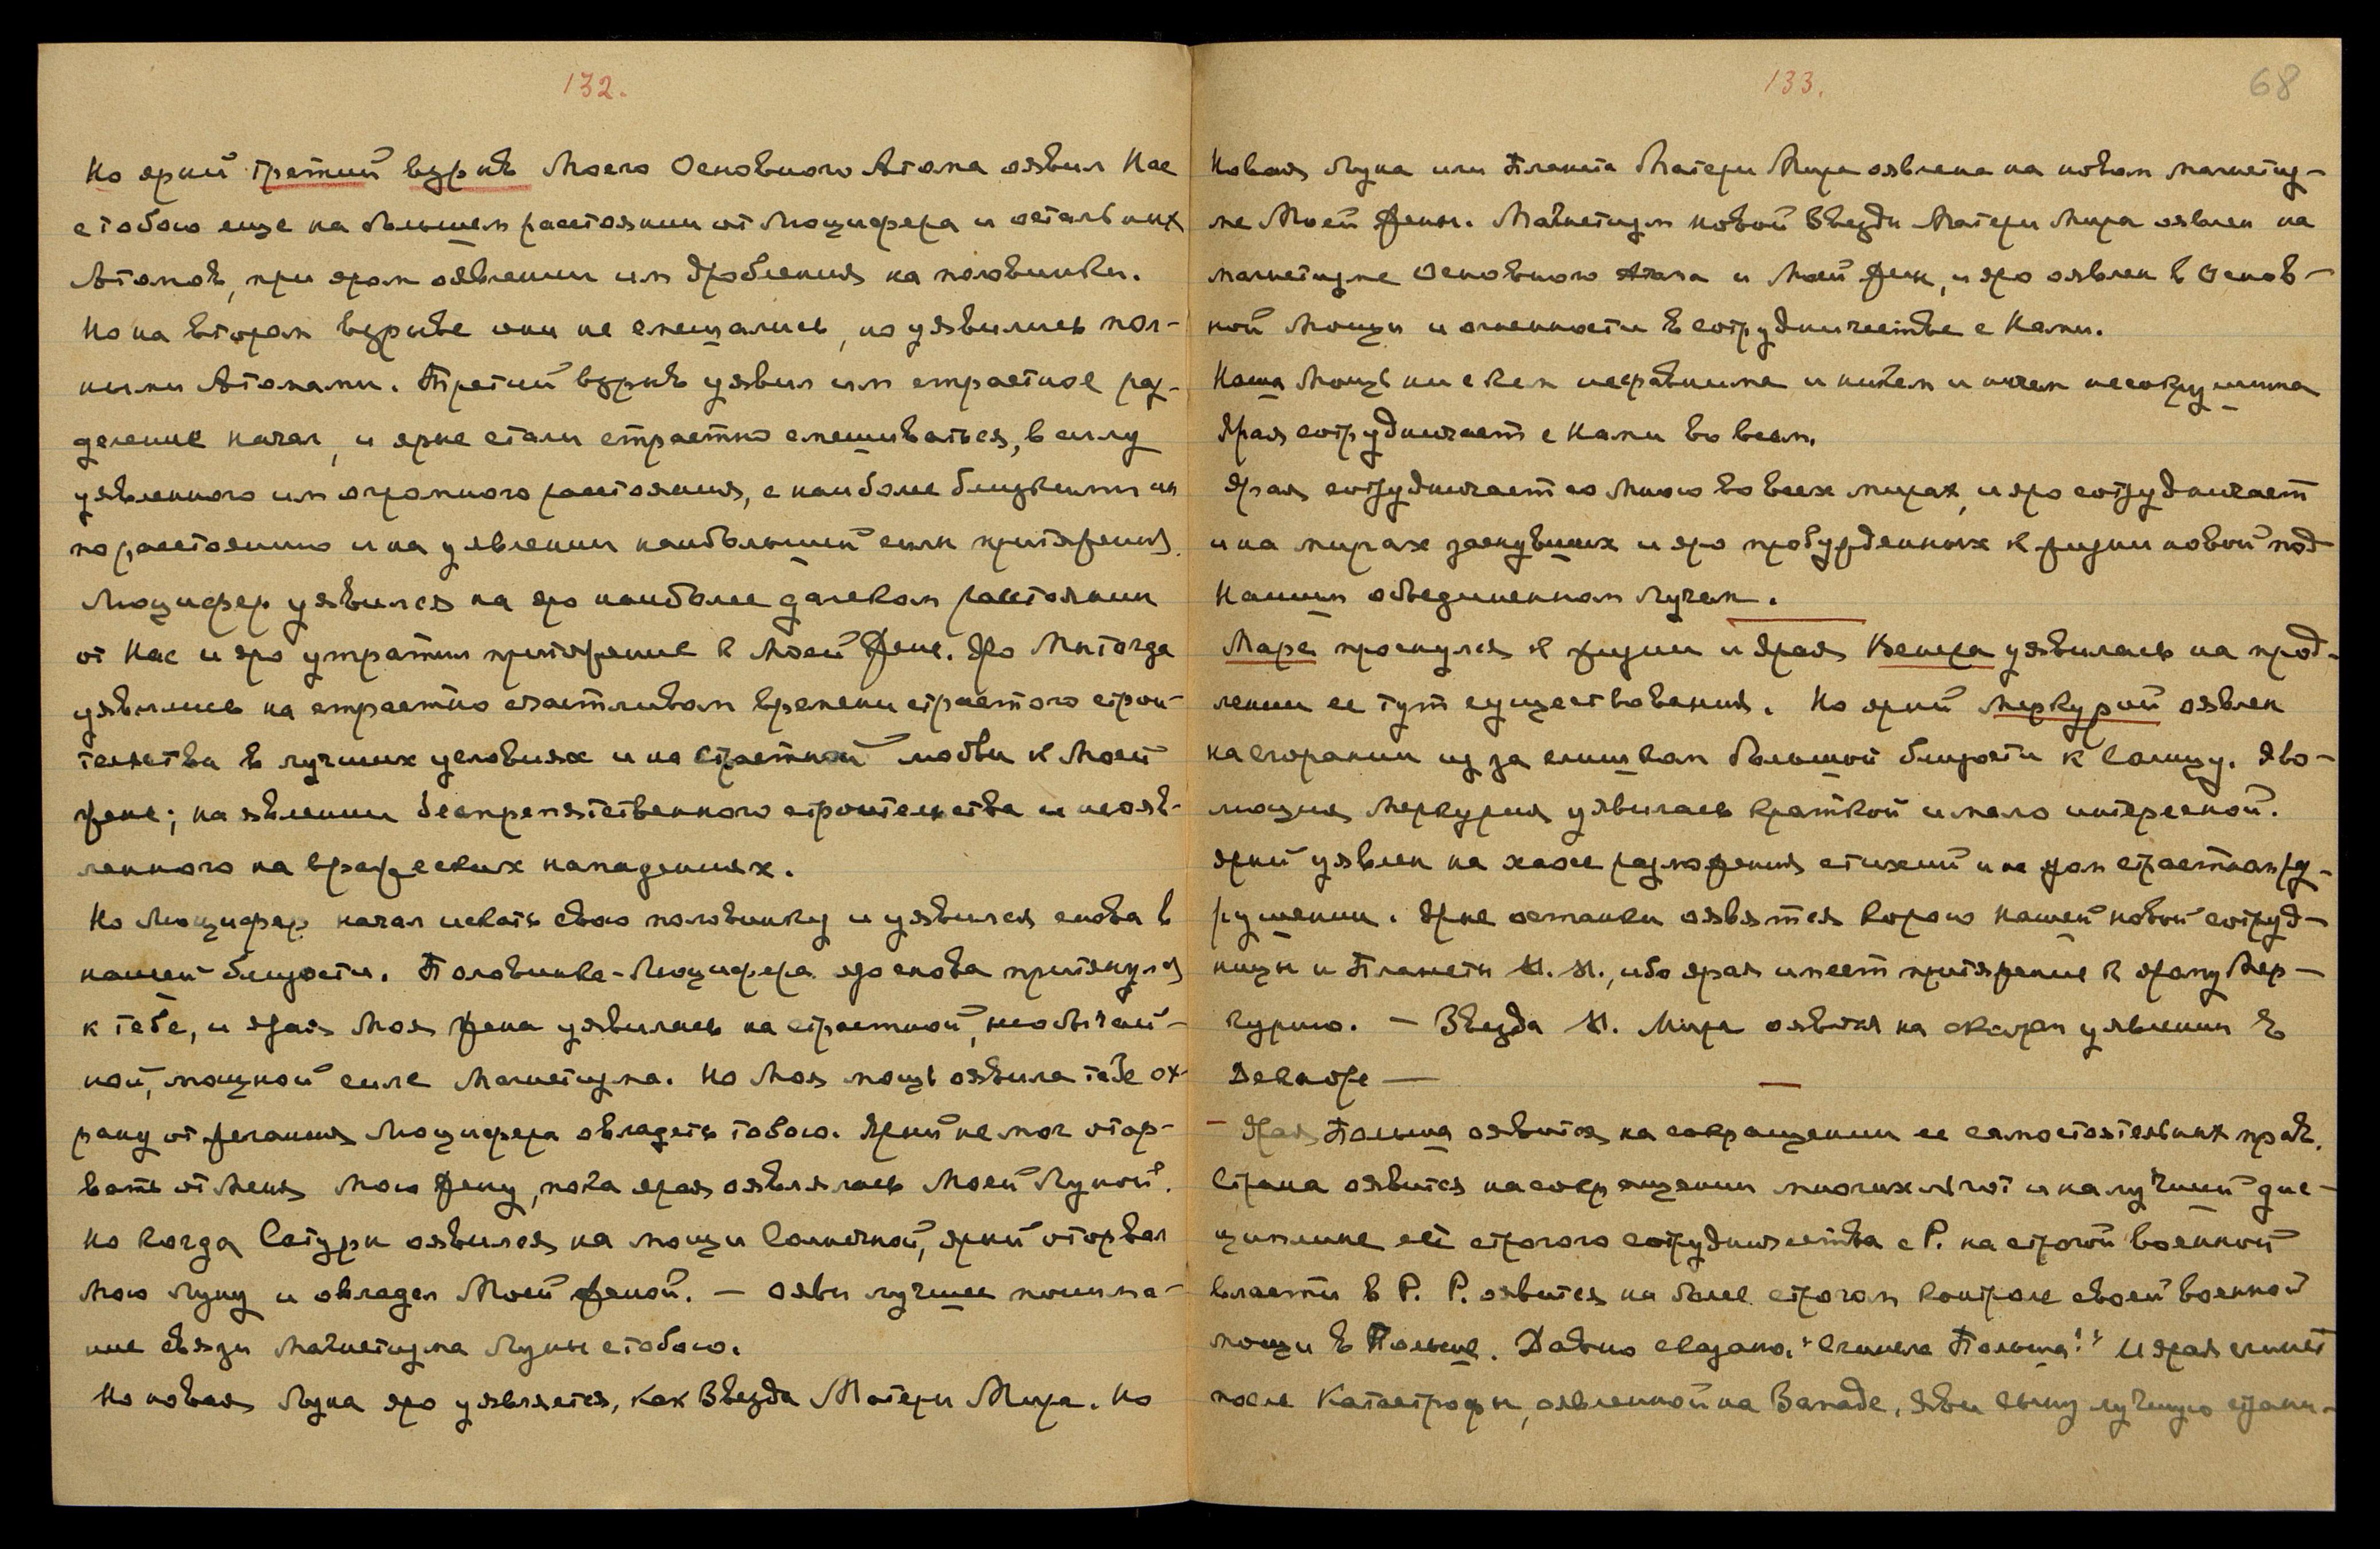 132.
Но ярый третий взрыв Моего Основного Атома оявил Нас
с тобою еще на большем расстоянии от Люцифера и остальных
Атомов, при яром оявлении им дробления на половинки.
Но на втором взрыве они не смещались, но уявились пол-
ными Атомами. Третий взрыв уявил им страстное раз-
деление начал, и ярые стали страстно смешиваться, в силу
уявленного им огромного расстояния, с наиболее близкими им
по расстоянию и на уявлении наибольшей силы притяжения.
Люцифер уявился на яро наиболее далеком расстоянии
от Нас и яро утратил притяжение к Моей Жене. Яро Мы тогда
уявились на страстно счастливом времени страстного строи-
тельства в лучших условиях и на страстной любви к Моей
Жене; на явлении беспрепятственного строительства и неояв-
ленного на вражеских нападениях.
Но Люцифер начал искать свою половинку и уявился снова в
нашей близости. Половинка-Люцифера яро снова притянулся
к тебе, и ярая Моя Жена уявилась на страстной, необычай-
ной, мощной силе Магнетизма. Но Моя мощь оявила тебе ох-
рану от желания Люцифера овладеть тобою. Ярый не мог отор-
вать от Меня Мою Жену, пока ярая оявлялась Моей Луной.
Но когда Сатурн оявился на мощи Солнечной, ярый оторвал
Мою Луну и овладел Моей Женой. — Ояви лучшее понима-
ние связи Магнетизма Луны с тобою.
Но новая Луна яро уявляется, как Звезда Матери Мира. Но
133.
68
Новая Луна или Планета Матери Мира оявлена на новом магнетиз-
ме Моей Жены. Магнетизм новой Звезды Матери Мира оявлен на
магнетизме Основного Атома и Моей Жены, и яро оявлен в Основ-
ной Мощи и огненности в сотрудничестве с Нами.
Наша Мощь ни с кем несравнима и никем и ничем несокрушима
Ярая сотрудничает с Нами во всем.
Ярая сотрудничает со Мною во всех мирах, и яро сотрудничает
и на мирах заснувших и яро пробужденных к жизни новой под
Нашим объединенным Лучем.
Марс проснулся к жизни и ярая Венера уявилась на прод-
лении ее тут существования. Но ярый Меркурий оявлен
на сгорании из за слишком большой близости к Солнцу. Эво-
люция Меркурия уявилась краткой и мало интересной.
Ярый уявлен на хаосе разложения стихий и на яром страстном раз-
рушении. Ярые останки оявятся корою Нашей новой сотруд-
ницы и Планеты М. М., ибо ярая имеет притяжение к ярому Мер-
курию. — Звезда М. Мира оявится на скором уявлении в
Декабре —
— Ярая Польша оявится на сокращении ее самостоятельных прав.
Страна оявится на сокращении многих льгот и на лучшей дис-
циплине её строгого сотрудничества с Р. на строгой военной
власти в Р. Р. оявится на более строгом контроле своей военной
мощи в Польше. Давно сказано, "Сгинела Польша!" И ярая сгинет
после Катастрофы, оявленной на Западе. Яви сыну лучшую страни-